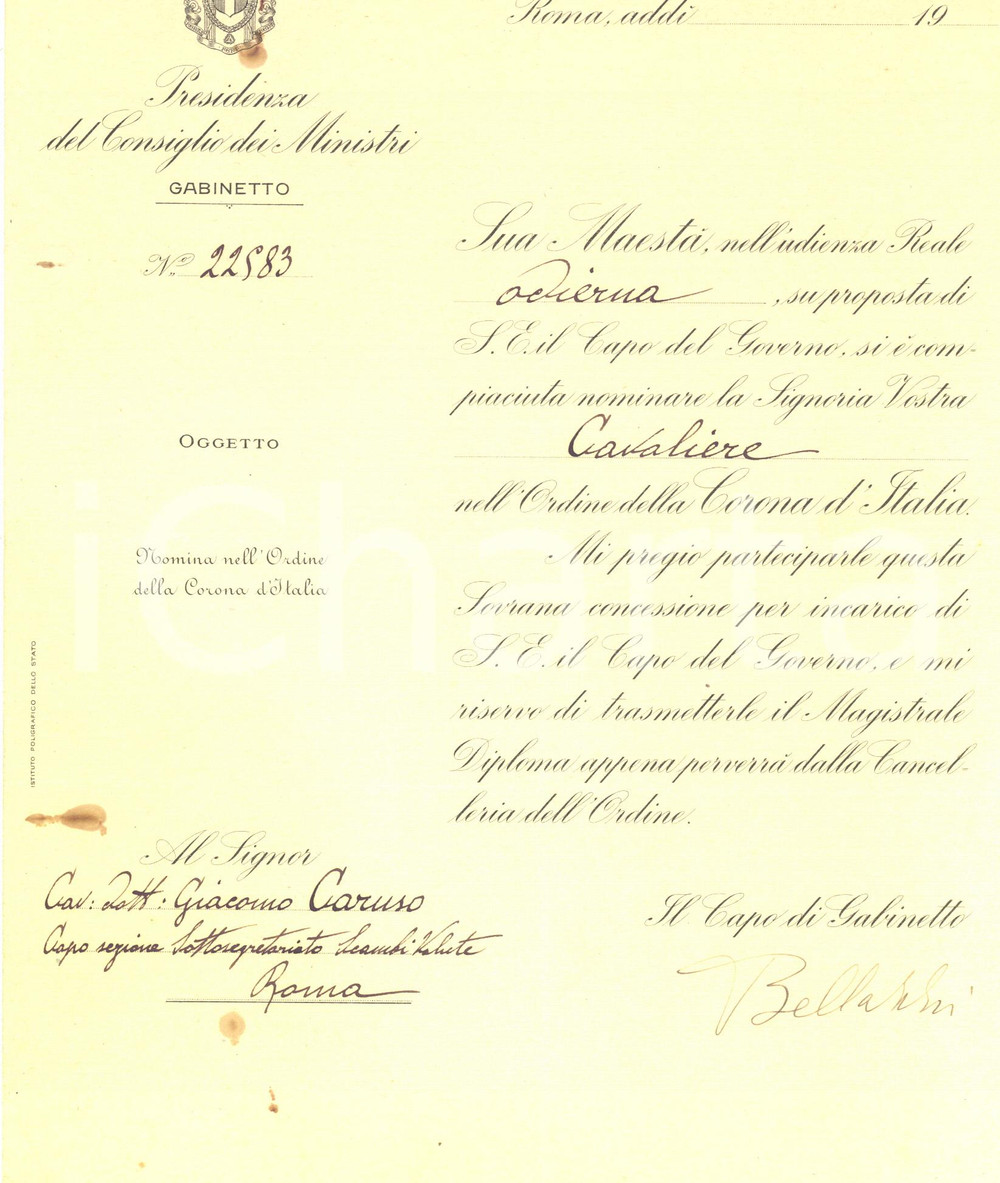 Roma, addì 19
Presidenza
del Consiglio dei Ministri
GABINETTO
N.º 22583
Sua Maestà, nell'udienza Reale
odierna, su proposta di
S. E. il Capo del Governo, si è com-
piaciuta nominare la Signoria Vostra
Cavaliere
nell'Ordine della Corona d'Italia.
OGGETTO
Nomina nell'Ordine
della Corona d'Italia
Mi pregio parteciparle questa
Sovrana concessione per incarico di
S. E. il Capo del Governo, e mi
riservo di trasmetterle il Magistrale
Diploma appena perverrà dalla Cancel-
leria dell'Ordine.
ISTITUTO POLIGRAFICO DELLO STATO
Al Signor
Cav: Dott: Giacomo Caruso
Capo sezione Sottosegretariato Scambi Valute
Roma
Il Capo di Gabinetto
iCharta